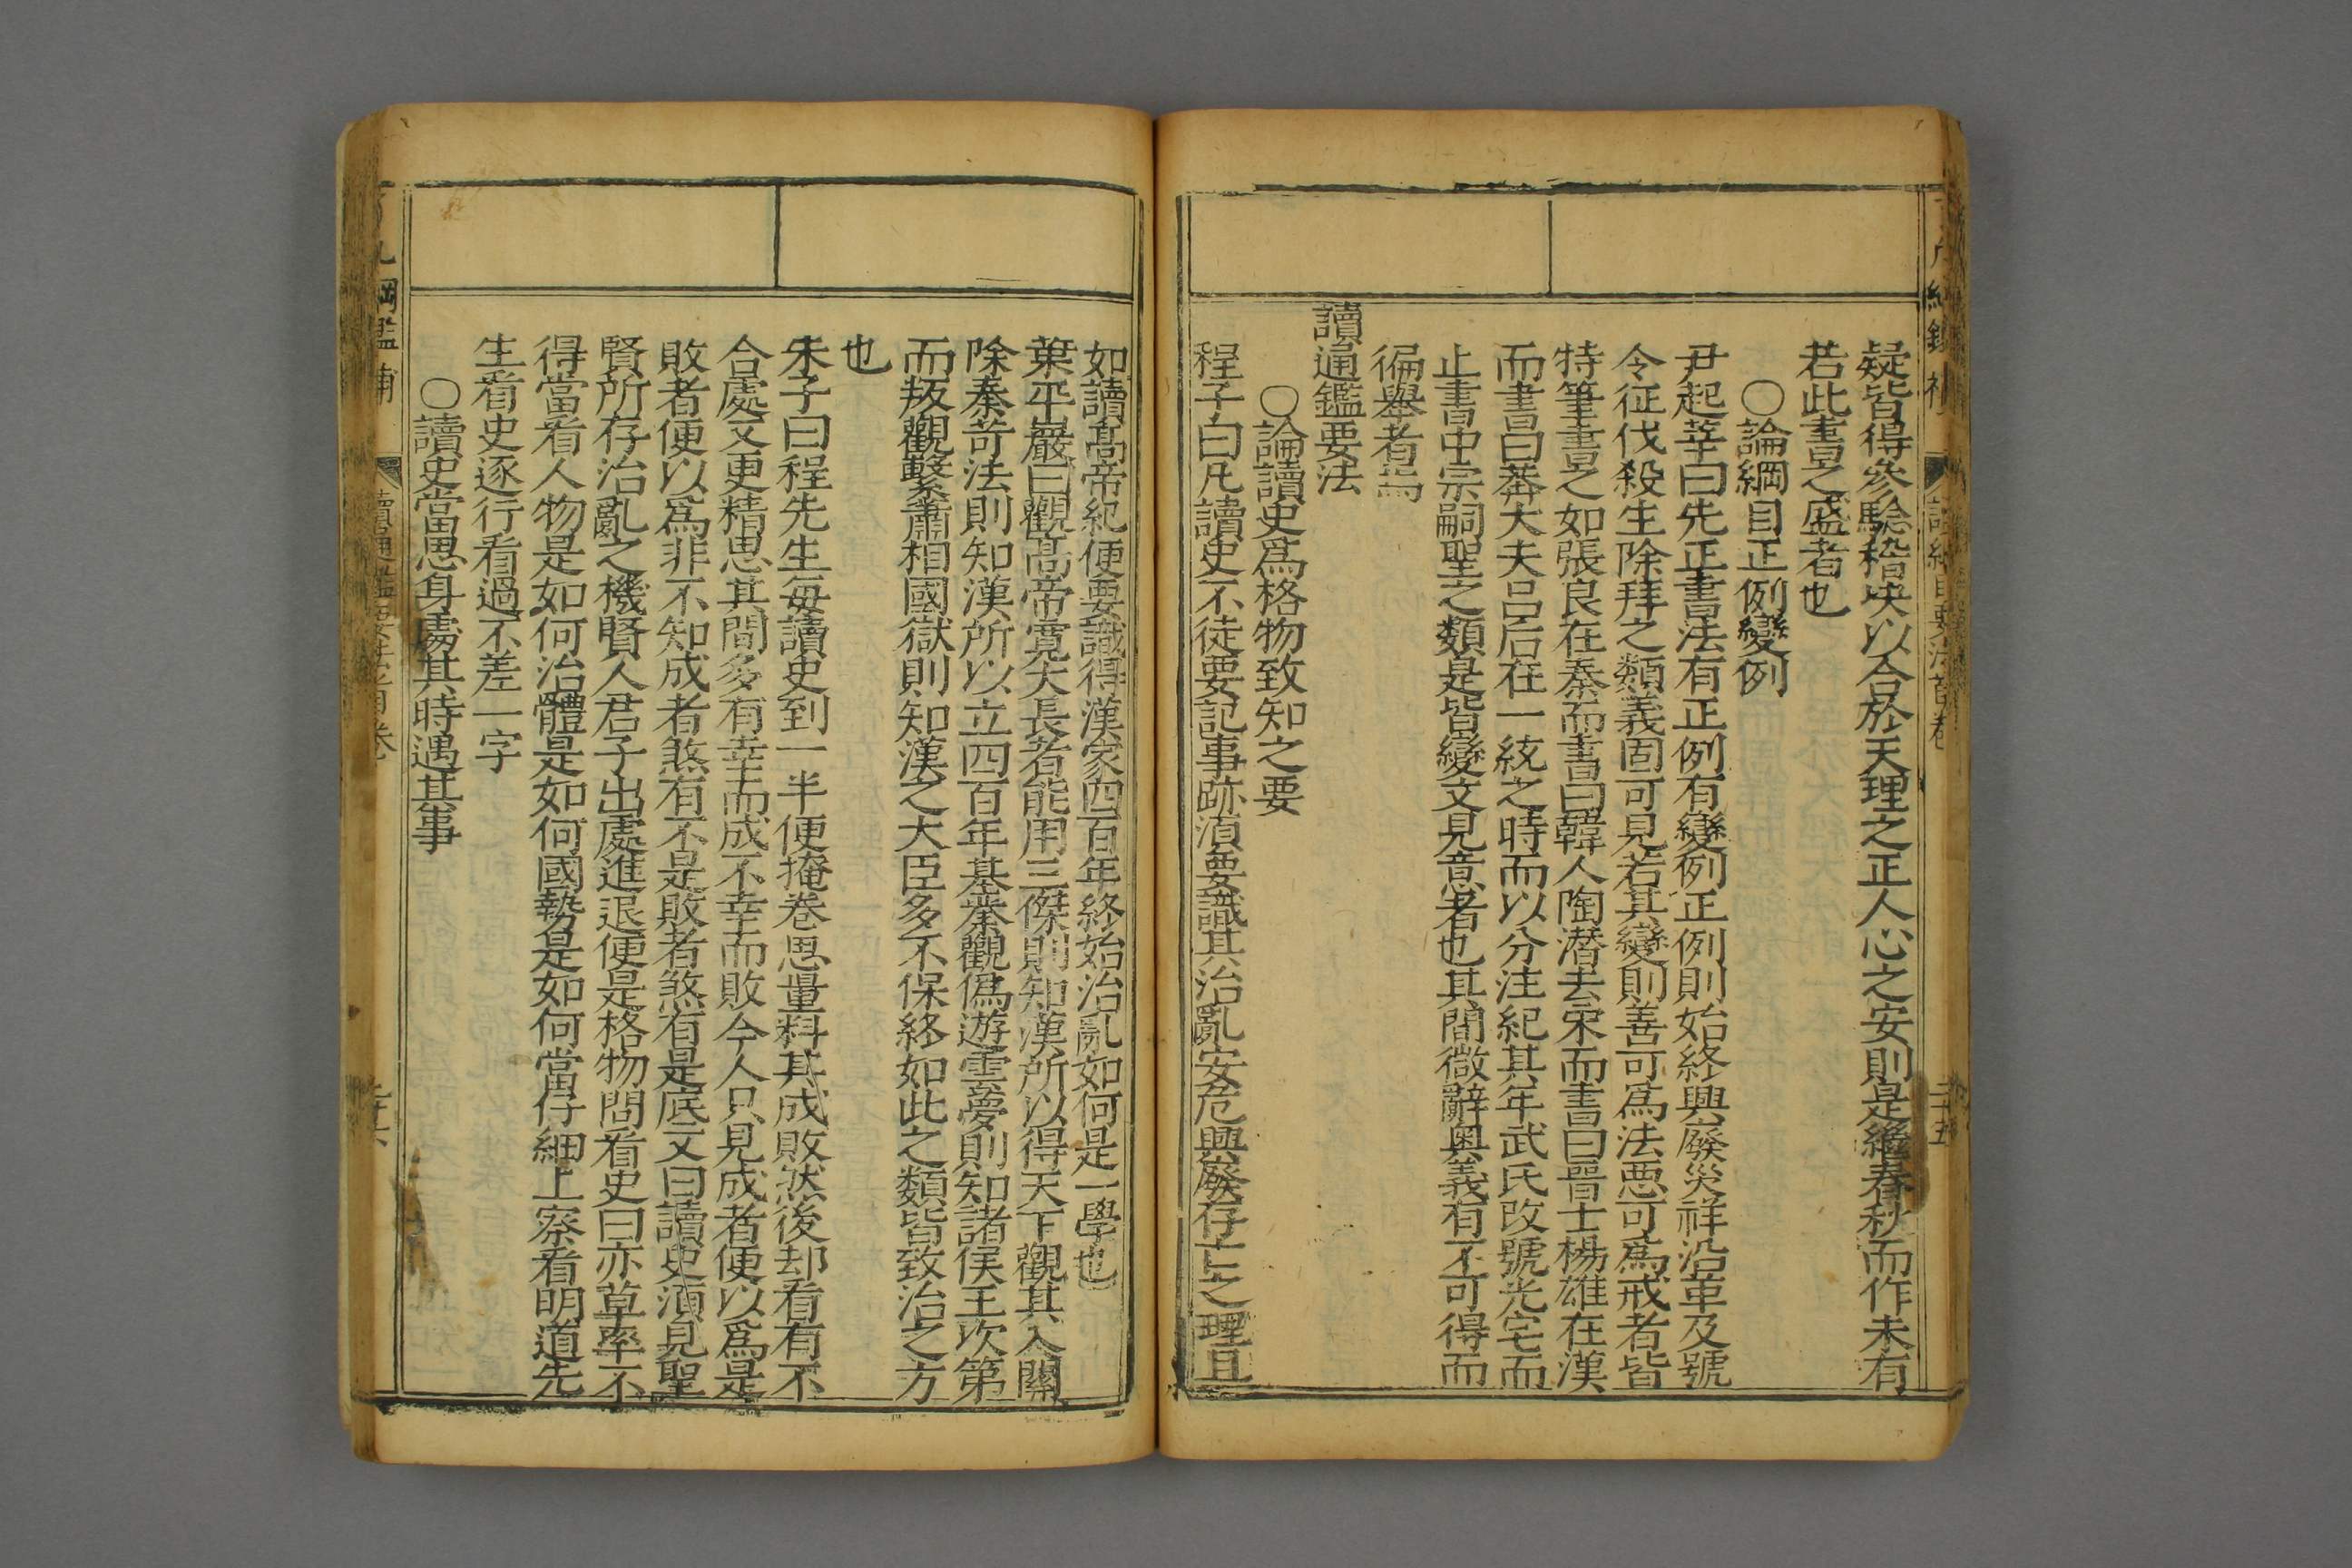 疑皆得參驗稽决以合於天理之正人心之安則是繼春秋而作未有
若此書之盛者也
○論綱目正例變例
尹起莘曰先正書法有正例有變例正例則始終興廢災祥沿革及號
令征伐殺生除拜之類義固可見若其變則善可爲法惡可爲戒者皆
特筆書之如張良在秦而書曰韓人陶潜去宋而書曰晉士楊雄在漢
而書曰莽大夫吕后在一統之時而以分注紀其年武氏改號光宅而
止書中宗嗣聖之類是皆變文見意者也其間微辭奥義有不可得而
徧舉者焉
讀通鑑要法
○論讀史爲格物致知之要
程子曰凡讀史不徒要記事跡湏要識其治亂安危興廢存亡之理且
如讀髙帝紀便要識得漢家四百年終始治亂如何是一學也
葉平巖曰觀髙帝寛大長者能用三傑則知漢所以得天下觀其入關
除秦苛法則知漢所以立四百年基業觀偽遊雲夢則知諸侯王次第
而叛觀繫蕭相國獄則知漢之大臣多不保終如此之類皆致治之方
也
朱子曰程先生毎讀史到一半便掩卷思量料其成敗然後却看有不
合處又更精思其間多有幸而成不幸而敗今人只見成者便以爲是
敗者便以爲非不知成者煞有不是敗者煞有是底又曰讀史湏見聖
賢所存治亂之機賢人君子出處進退便是格物問看史曰亦草率不
得當看人物是如何治體是如何國勢是如何當仔細上察看明道先
生看史逐行看過不差一字
○讀史當思身處其時遇其事
綱鑑補
讀通鑑要法首卷